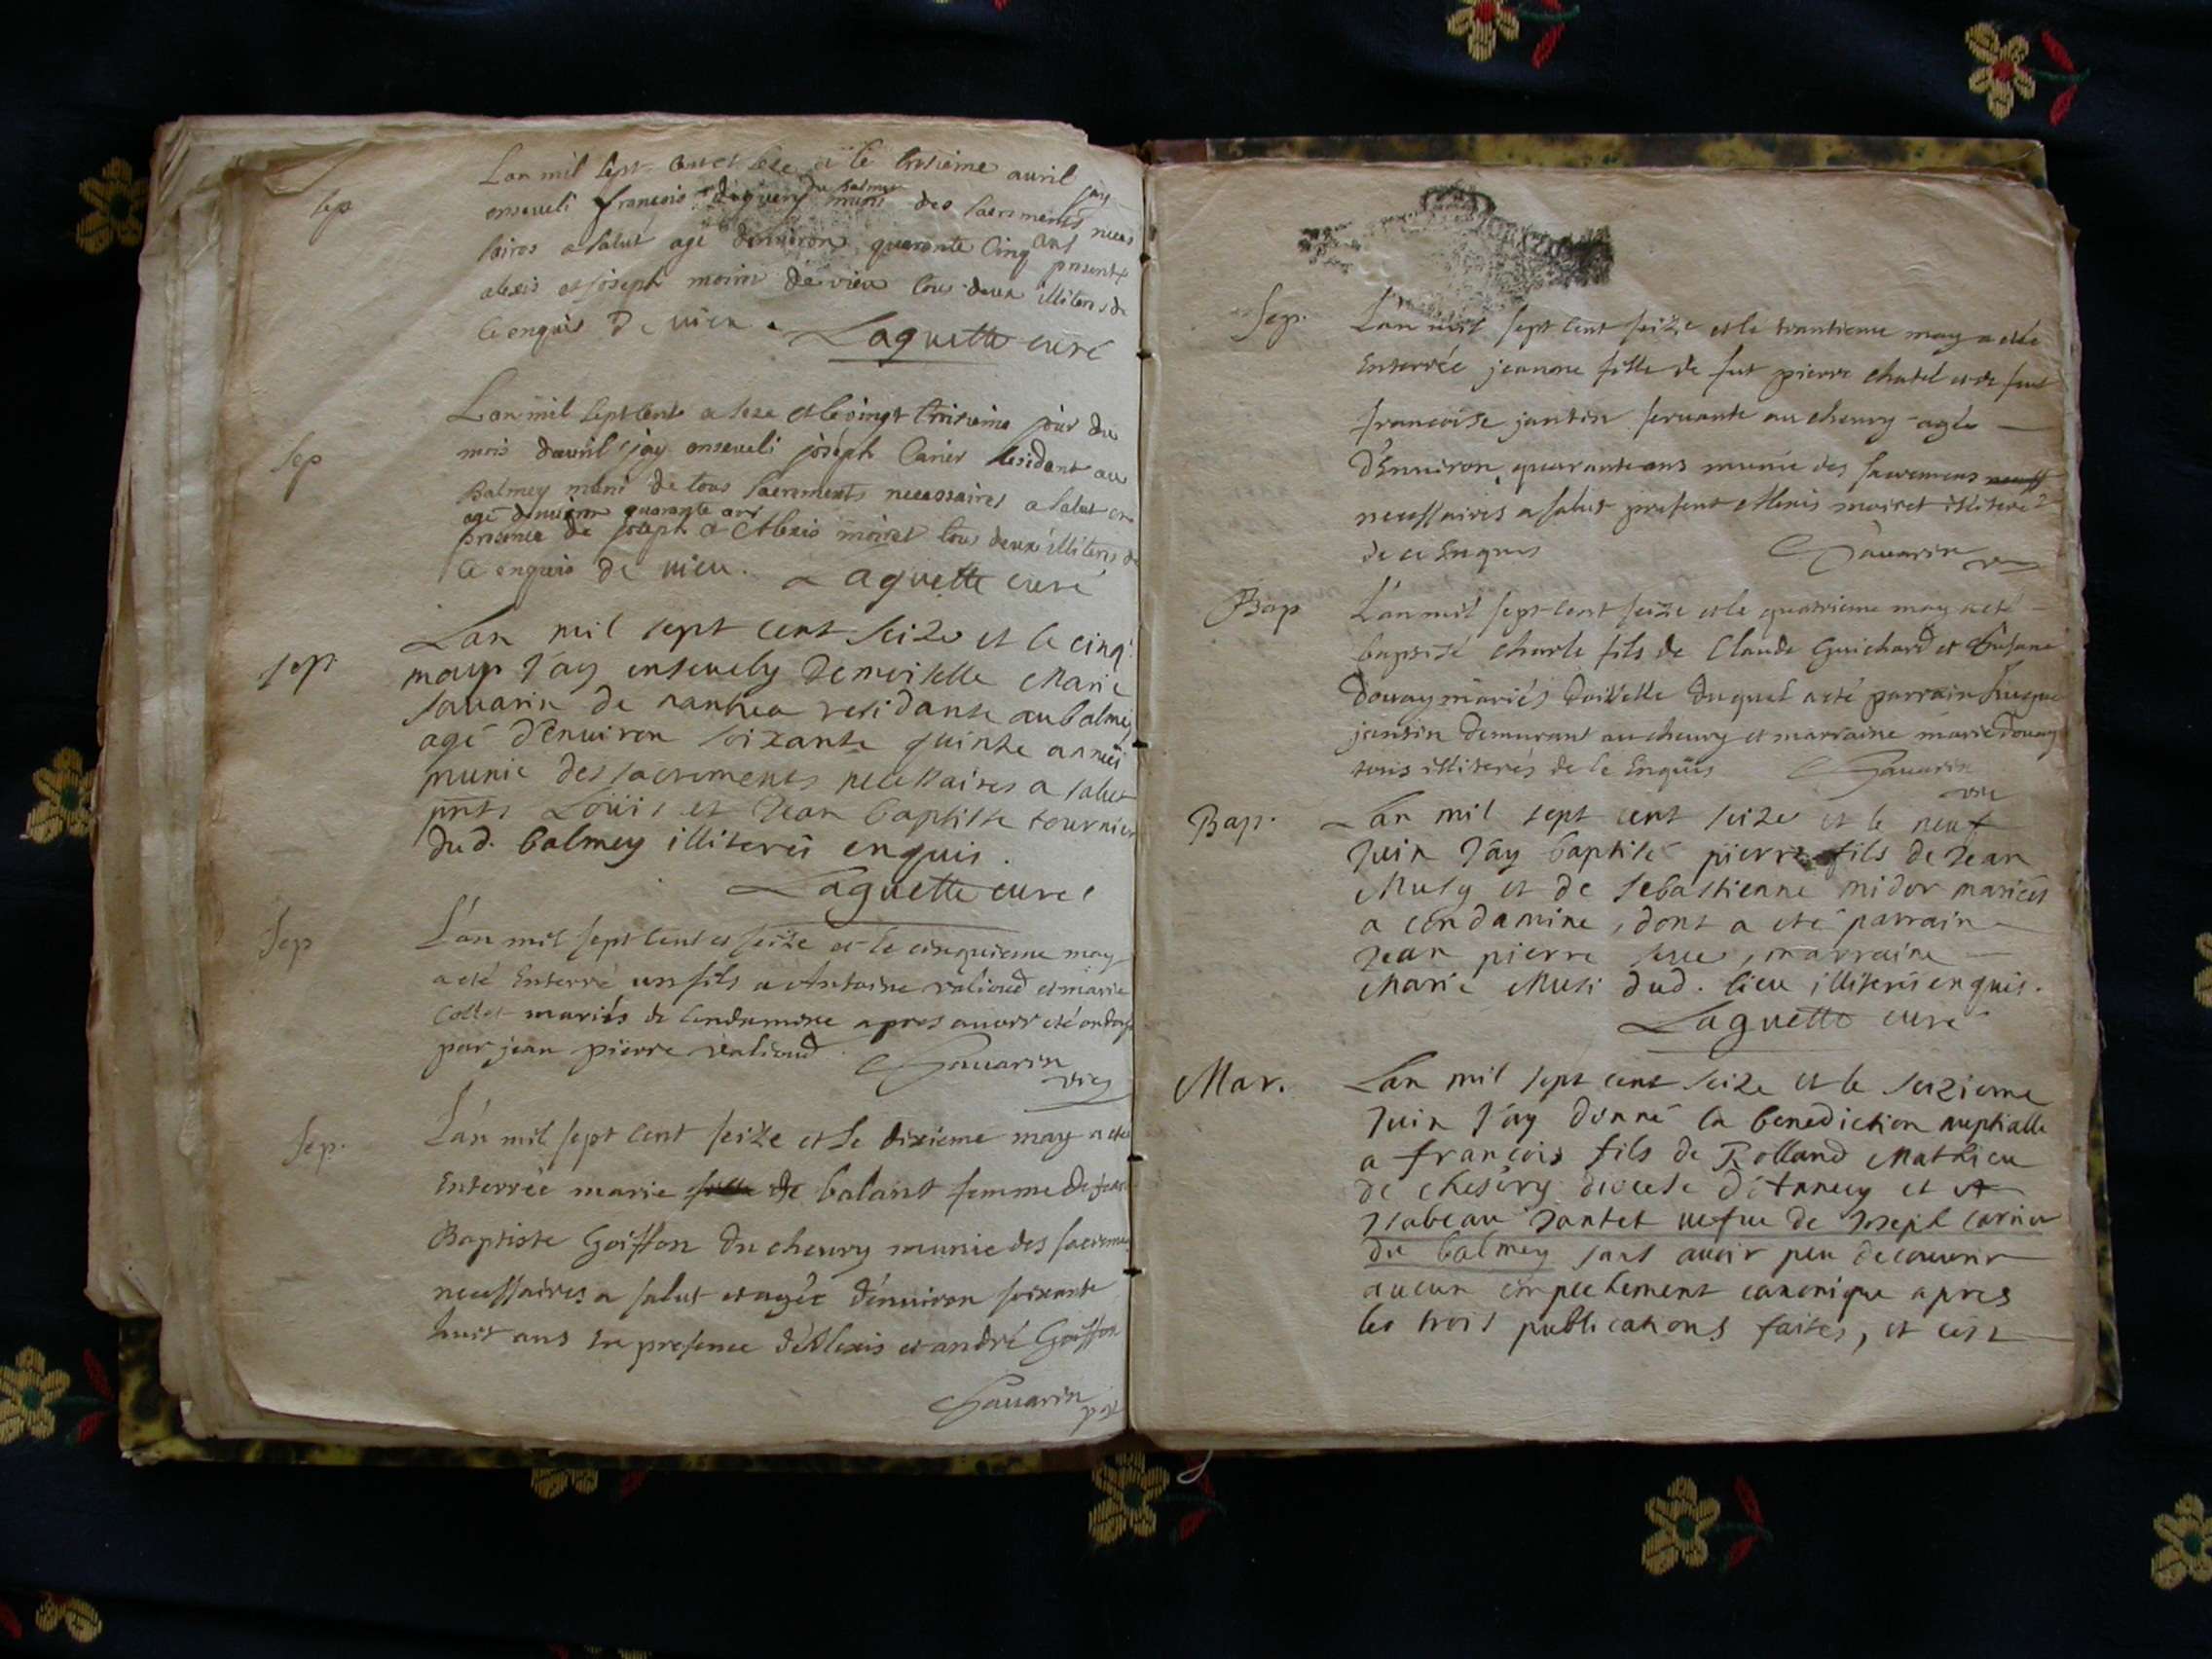 Sep
Lan mil sept cent et seze et le troisieme auril jay
enseueli francois du balmey muni des sacrements neces
saires a salut agé denuiron quarante cinq ans presents
alexis et joseph moiret de vieu tous deux illiterés de
ce enquis de uieu. Laguette curé
Sep
Lan mil sept cent a seze et le vingt troisieme jour du
mois dauril jay enseueli joseph Carier residant au
Balmey muni de tous sacrements necessaires a salut en
agé denuiron quarante ans
presence de joseph & Alexis moiret tous deux illiterés de
ce enquis de uieu. Laguette curé
sep
Lan mil sept cent seize et le cinq.
may J'ay enseuely Demoiselle Marie
sauarin de nantua residante au balmey
agé d'enuiron soixante quinze années
munie des sacrements necessaires a salut
pnts Loüis et Jean baptiste tournier
dud. balmey illiterés enquis.
Laguette curé
Sep
L'an mil sept cent et seize et le cinquieme may
a eté Enterré un fils a Antoine ualioud et marie
Collet mariés de Condamine apres auoir eté ondoyé
par jean pierre ualioud. Sauarin
vic
Sep.
L'an mil sept cent seize et le dixieme may a eté
Enterrée marie fille de balant femme de jean
Baptiste Goiffon du cheury munie des sacremens
necessaires a salut et agée d'enuiron soixante
huit ans En presence d'Alexis et andré Goiffon
Sauarin
Sep.
L'an mil sept cent seize et le trantieme may a eté
Enterrée jeanne fille de fut pierre chatel et de fut
francoise jantin seruante au cheury agée
d'Enuiron quarante ans munie des sacremens
necessaires a salut present Alexis moiret illiteré
de ce Enquis Sauarin
Bap
L'an mil sept cent seize et le quatrieme may a eté
baptisé charle fils de Claude Guichard et
Douay mariés duquel a eté parrain
jantin demurant au cheury et marraine marie douay
tous illiterés de ce Enquis Sauarin
vic
Bap.
Lan mil sept cent seize et le neuf
Juin J'ay baptisé pierre fils de Jean
Musy et de Sebastienne midor mariés
a condamine, dont a eté parrain
Jean pierre, marraine
Marie Musi dud. lieu illiterés enquis.
Laguette curé
Mar.
Lan mil sept cent seize et le seizieme
Juin J'ay donné la benediction nuptialle
a françois fils de Rolland Mathieu
de cheséry diocese d'Annecy et et
Isabeau Jantet uefue de Joseph carrier
du balmey sans auoir peu decouurir
aucun empechement canonique apres
les trois publications faites, et cest